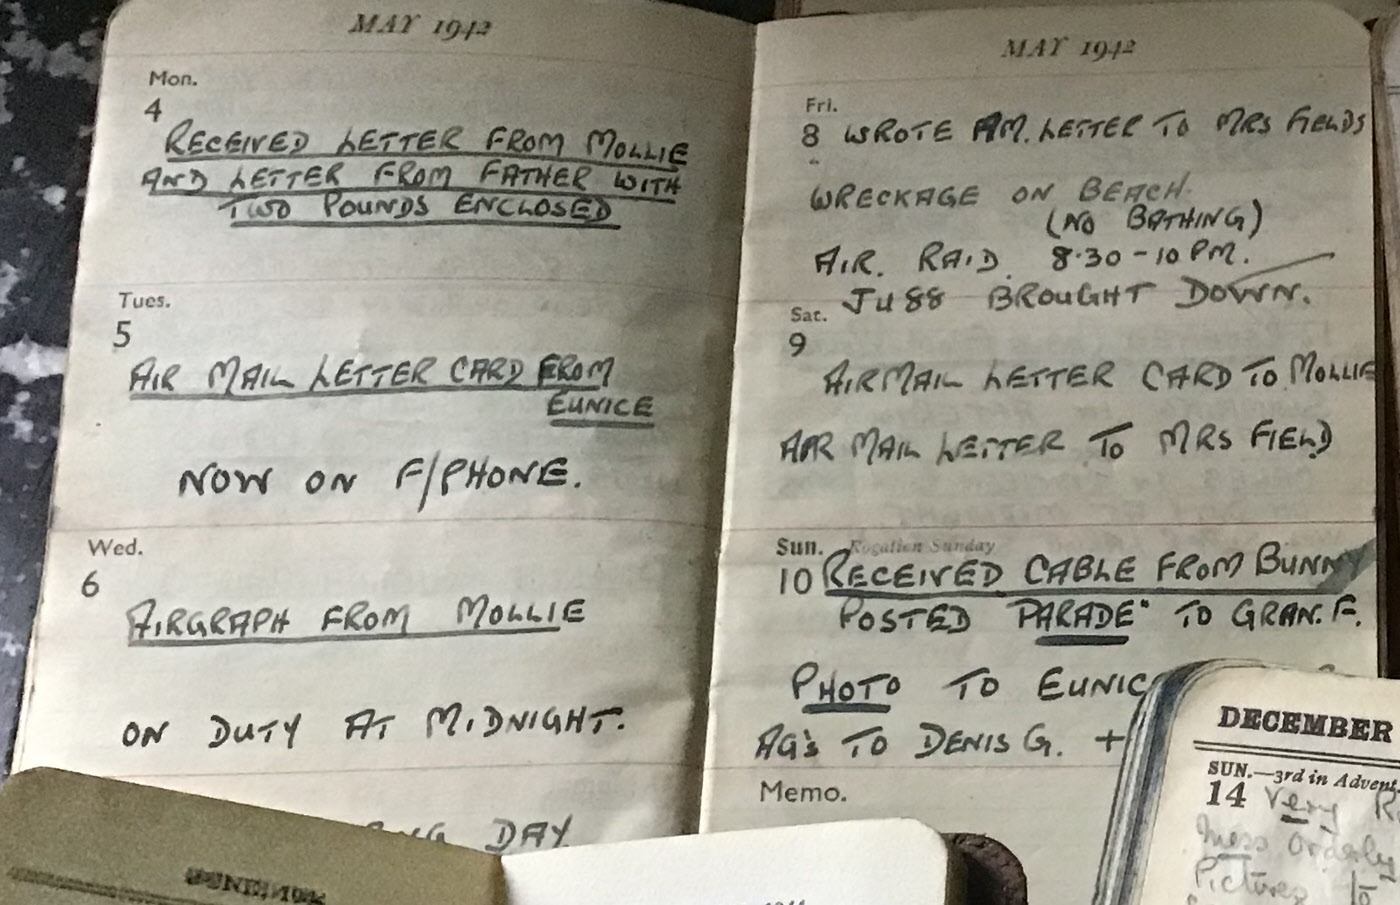 MAY 1942
Mon.
4
RECEIVED LETTER FROM MOLLIE
AND LETTER FROM FATHER WITH
TWO POUNDS ENCLOSED
Tues.
5
AIR MAIL LETTER CARD FROM
EUNICE
NOW ON F/PHONE.
Wed.
6
AIRGRAPH FROM MOLLIE
ON DUTY AT MIDNIGHT.
DAY
MAY 1942
Fri.
8 WROTE AM. LETTER TO MRS FIELDS
WRECKAGE ON BEACH.
(NO BATHING)
AIR. RAID. 8.30 - 10 PM.
JU 88 BROUGHT DOWN.
Sat.
9
AIRMAIL LETTER CARD TO MOLLIE
AIR MAIL LETTER TO MRS FIELD
Sun. Rogation Sunday
10 RECEIVED CABLE FROM BUNNY
POSTED "PARADE" TO GRAN. F.
PHOTO TO EUNIC
AG's TO DENIS G. +
Memo.
DECEMBER
SUN.—3rd in Advent.
14 Very
Mess Orderly
Pictures to